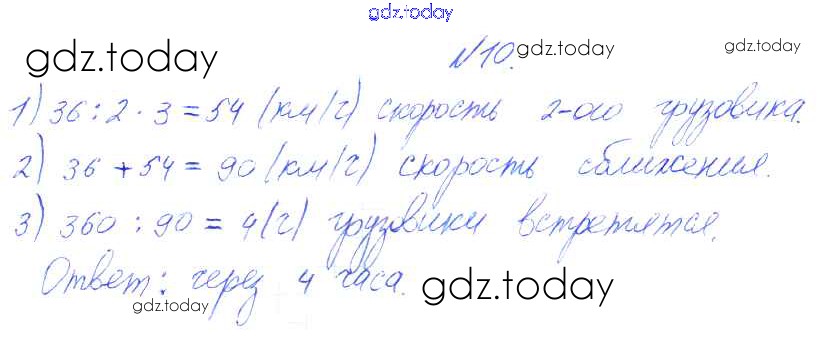 gdz.today
№10.
gdz.today gdz.today gdz.today
1) 36 : 2 · 3 = 54 (км/ч) скорость 2-ого грузовика.
2) 36 + 54 = 90 (км/ч) скорость сближения.
3) 360 : 90 = 4 (ч) грузовики встретятся.
Ответ: через 4 часа.
gdz.today gdz.today